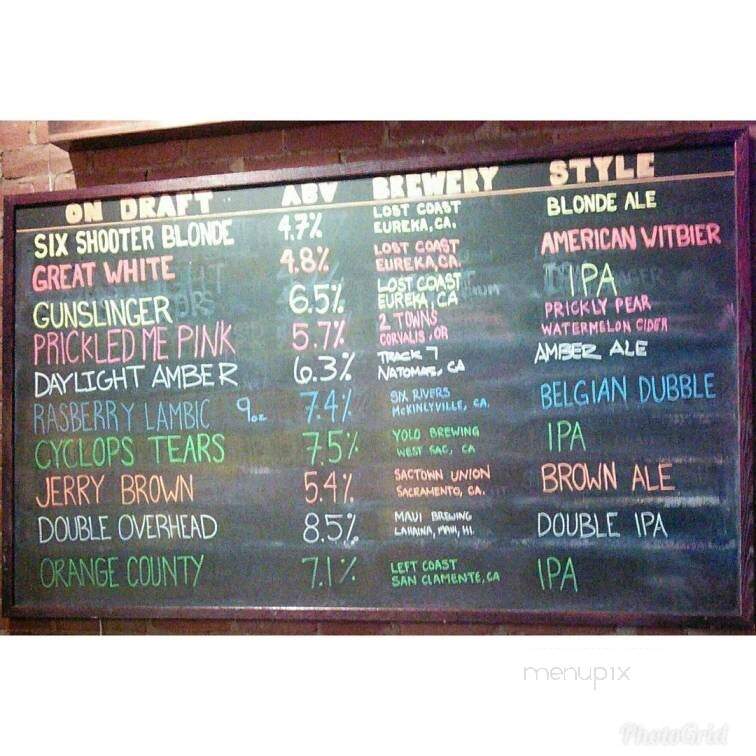 ON DRAFT ABV BREWERY STYLE
SIX SHOOTER BLONDE 4.7% LOST COAST EUREKA, CA. BLONDE ALE
GREAT WHITE 4.8% LOST COAST EUREKA, CA. AMERICAN WITBIER
GUNSLINGER 6.5% LOST COAST EUREKA, CA IPA
PRICKLED ME PINK 5.7% 2 TOWNS CORVALIS, OR PRICKLY PEAR WATERMELON CIDER
DAYLIGHT AMBER 6.3% TRACK 7 NATOMAS, CA AMBER ALE
RASBERRY LAMBIC 9oz 7.4% SIX RIVERS McKINLYVILLE, CA. BELGIAN DUBBLE
CYCLOPS TEARS 7.5% YOLO BREWING WEST SAC, CA IPA
JERRY BROWN 5.4% SACTOWN UNION SACRAMENTO, CA. BROWN ALE
DOUBLE OVERHEAD 8.5% MAUI BREWING LAHAINA, MAUI, HI. DOUBLE IPA
ORANGE COUNTY 7.1% LEFT COAST SAN CLAMENTE, CA IPA
menupix
PhotoGrid